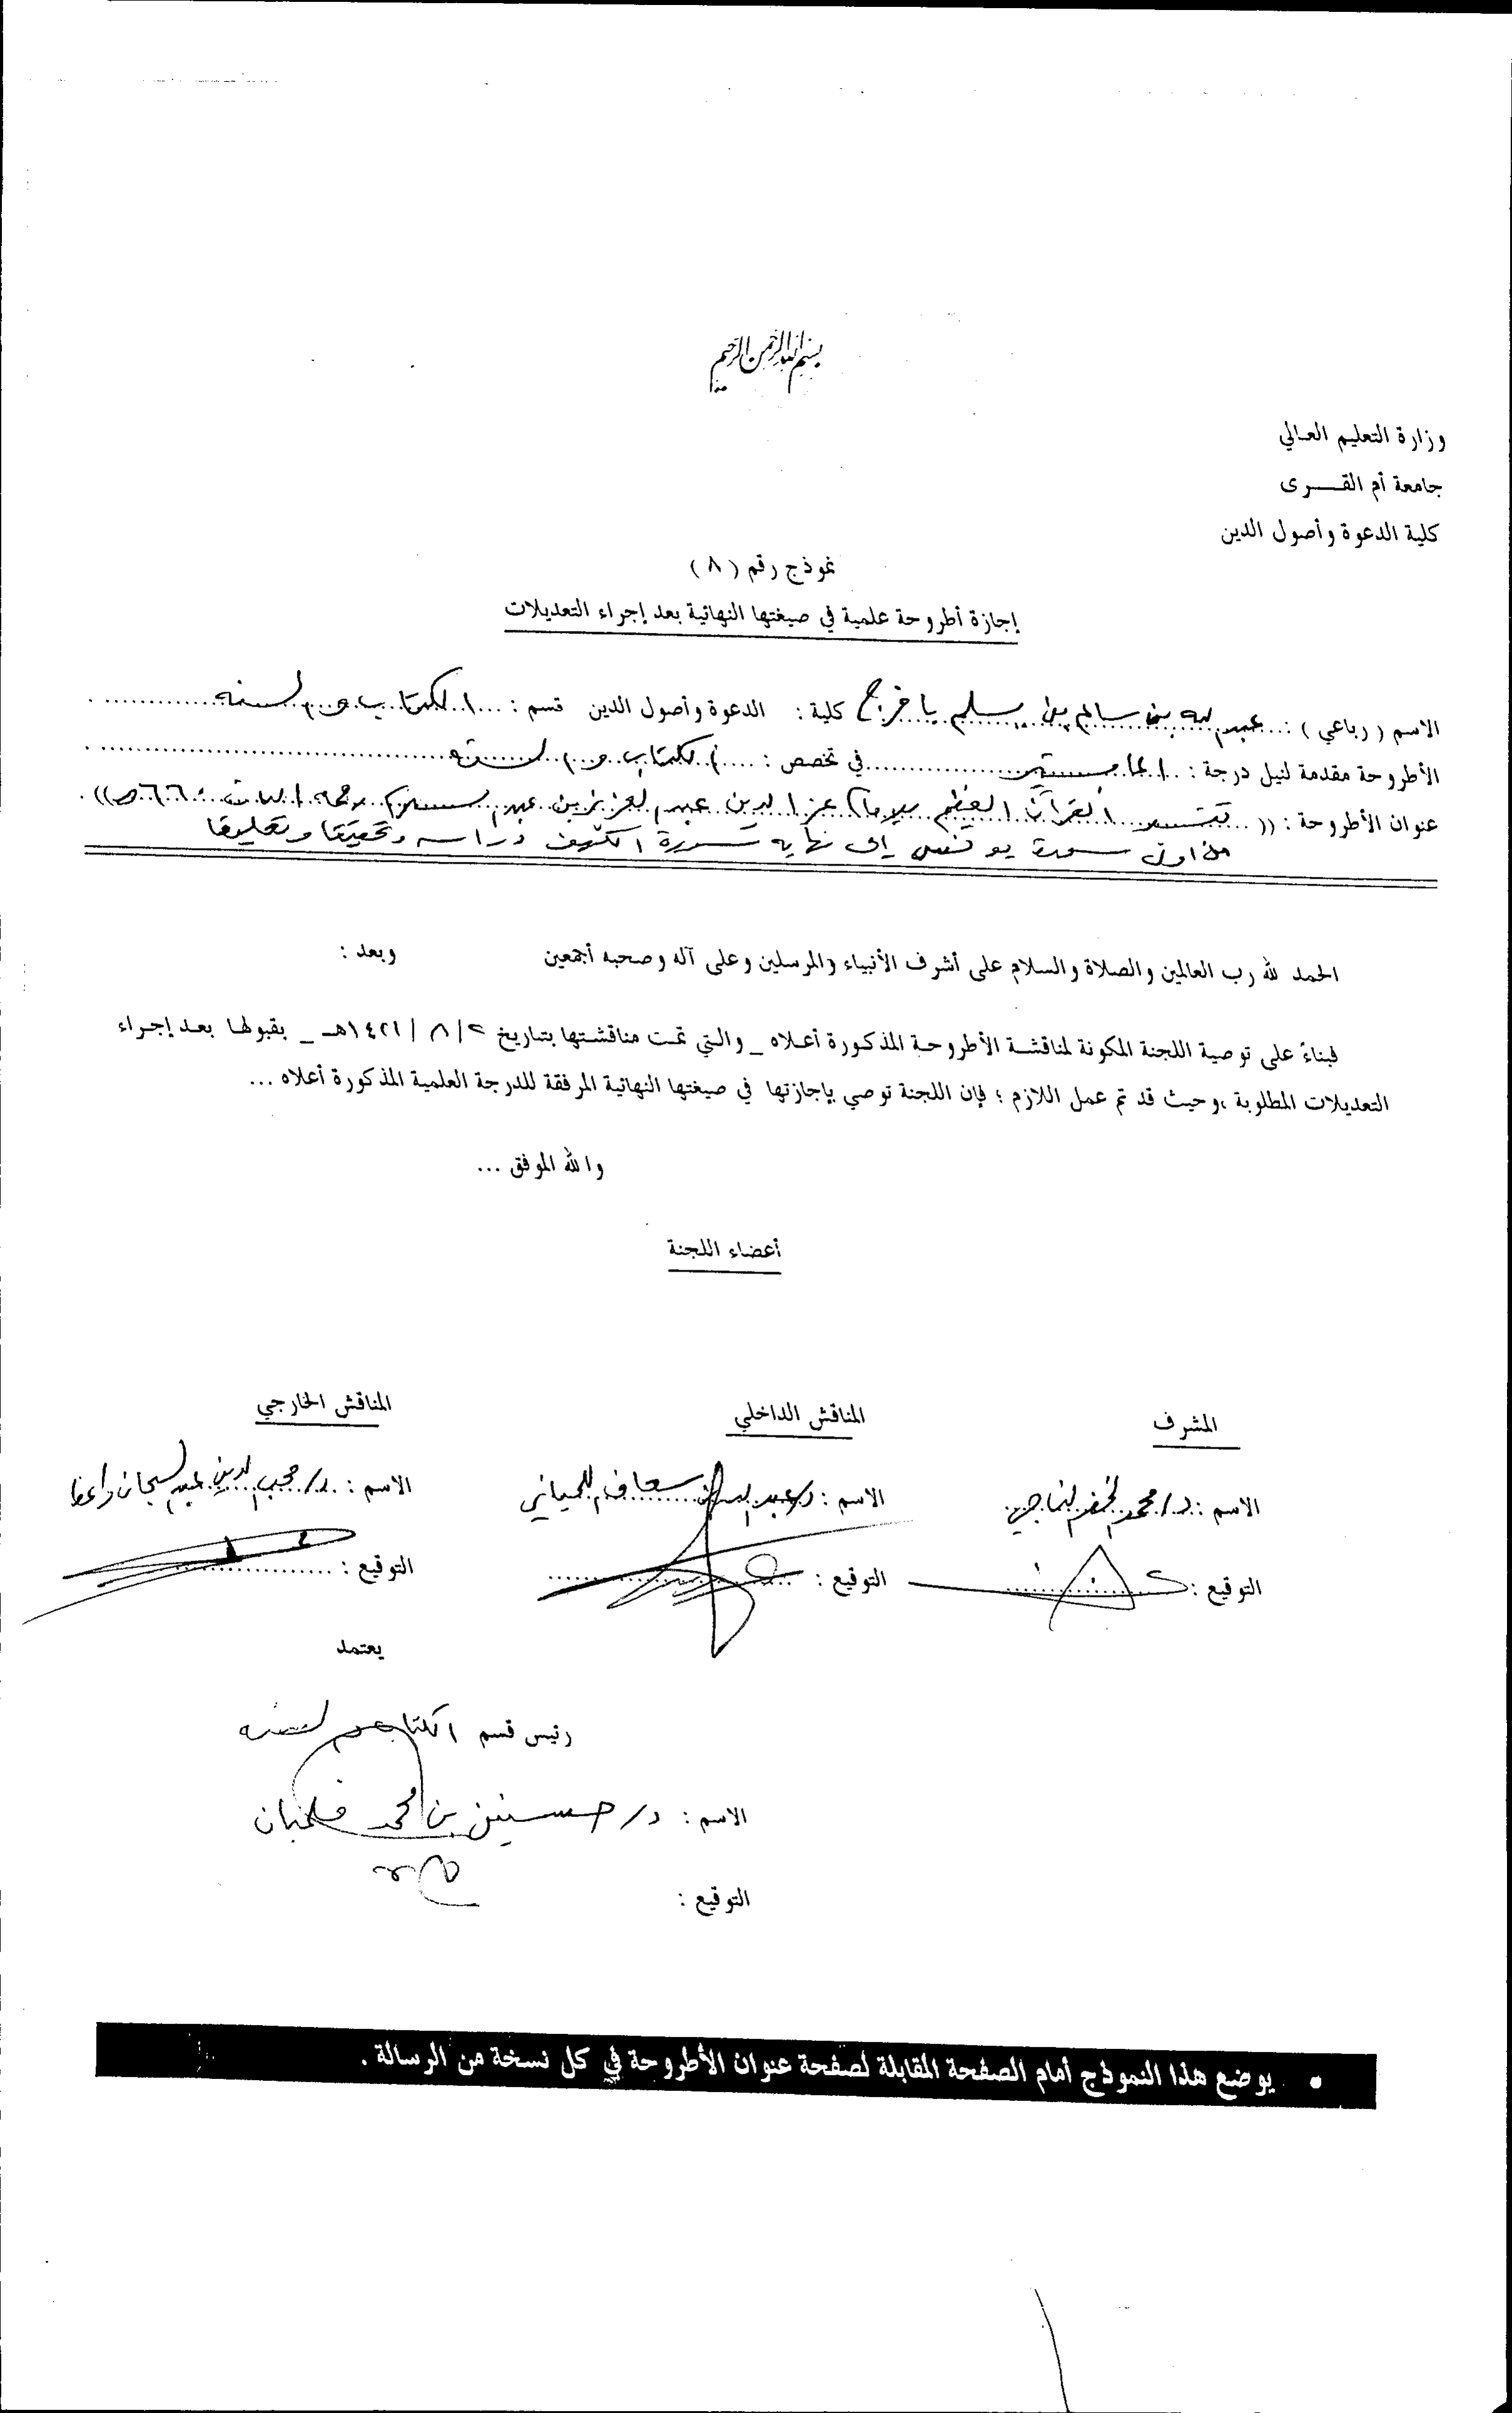 بسم الله الرحمن الرحيم
وزارة التعليم العالي
جامعة أم القـــرى
كلية الدعوة وأصول الدين
نموذج رقم ( ٨ )
إجازة أطروحة علمية في صيغتها النهائية بعد إجراء التعديلات
الاسم ( رباعي ) : عبد الله بن سالم بن يسلم بافرج كلية : الدعوة وأصول الدين قسم : الكتاب والسنة
الأطروحة مقدمة لنيل درجة : الماجستير في تخصص : الكتاب والسنة
عنوان الأطروحة : (( تفسير القرآن العظيم للإمام عز الدين عبد العزيز بن عبد السلام رحمه الله ت ٦٦٠هـ ))
من أول سورة يونس إلى نهاية سورة الكهف دراسة وتحقيقا وتعليقا
الحمد لله رب العالمين والصلاة والسلام على أشرف الأنبياء والمرسلين وعلى آله وصحبه أجمعين وبعد :
فبناءً على توصية اللجنة المكونة لمناقشة الأطروحة المذكورة أعلاه _ والتي تمت مناقشتها بتاريخ ٢ / ٨ / ١٤٢١هـ _ بقبولها بعد إجراء
التعديلات المطلوبة ،وحيث قد تم عمل اللازم ؛ فإن اللجنة توصي بإجازتها في صيغتها النهائية المرفقة للدرجة العلمية المذكورة أعلاه ...
والله الموفق ...
أعضاء اللجنة
المشرف المناقش الداخلي المناقش الخارجي
الاسم : د/ محمد الخضر الناجي الاسم : د/ عبد الله سعاف اللحياني الاسم : د/ محب الدين عبد السبحان واعظ
التوقيع : التوقيع : التوقيع :
يعتمد
رئيس قسم الكتاب والسنة
الاسم : د/ بن محمد فلمبان
التوقيع :
• يوضع هذا النموذج أمام الصفحة المقابلة لصفحة عنوان الأطروحة في كل نسخة من الرسالة .